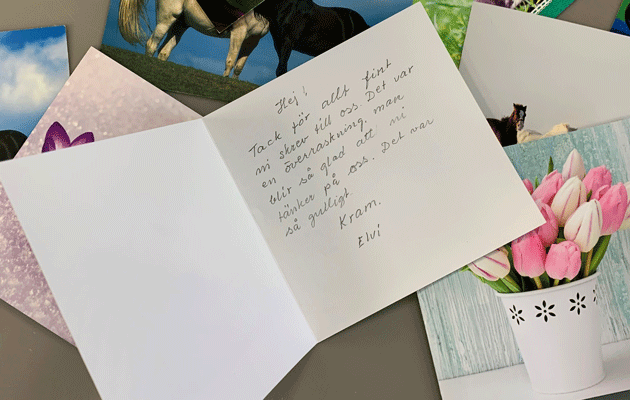 Hej!
Tack för allt fint
ni skrev till oss. Det var
en överraskning, man
blir så glad att ni
tänker på oss. Det var
så gulligt.
Kram.
Elvi